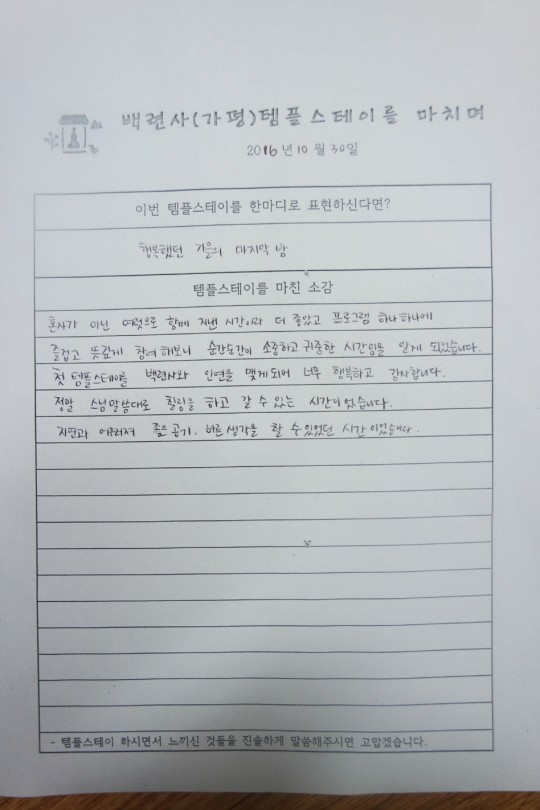 백련사(가평)템플스테이를 마치며
2016년 10월 30일
이번 템플스테이를 한마디로 표현하신다면?
행복했던 가을의 마지막 밤
템플스테이를 마친 소감
혼자가 아닌 여럿으로 함께 지낸 시간이라 더 좋았고 프로그램 하나하나에
즐겁고 뜻깊게 참여해보니 순간순간이 소중하고 귀중한 시간임을 알게 되었습니다.
첫 템플스테이를 백련사와 인연을 맺게되어 너무 행복하고 감사합니다.
정말 스님말씀대로 힐링을 하고 갈 수 있는 시간이었습니다.
자연과 어우러져 좋은공기, 바른생각을 할 수있었던 시간이었습니다.
- 템플스테이 하시면서 느끼신 것들을 진솔하게 말씀해주시면 고맙겠습니다.